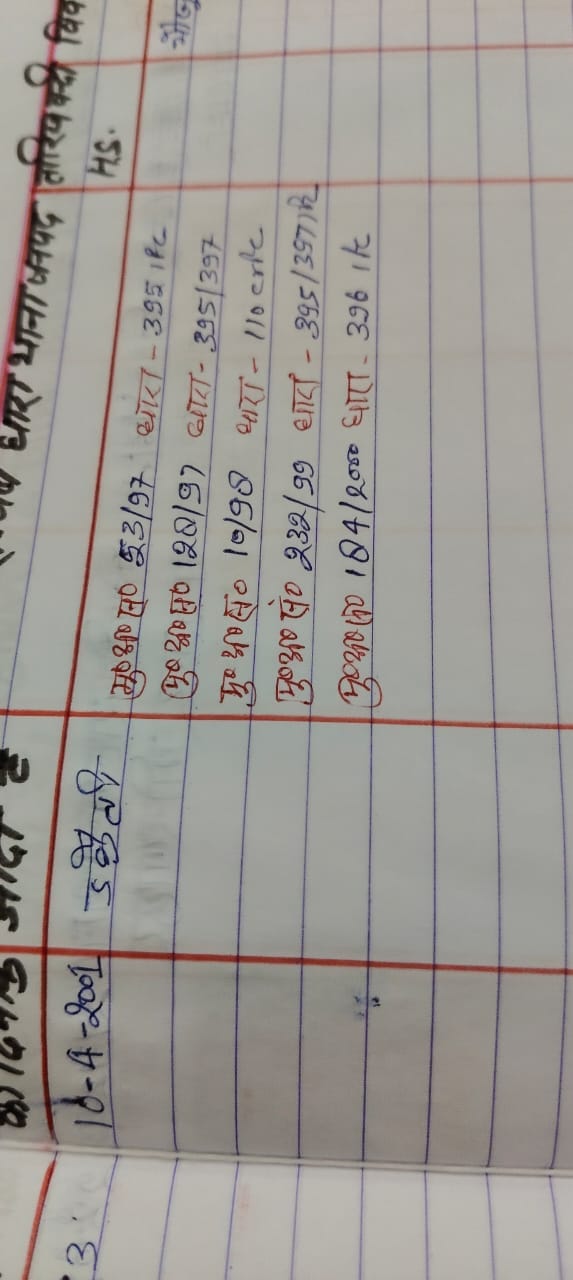 का दिनांक आदी है धारा थाना जनपद तारिखबन्दी
3 10-4-2001 डकैती H.S.
मु०अ०स० 53/97 धारा - 395 IPC
मु०अ०स० 128/97 धारा - 395/397
मु०अ०सं० 10/98 धारा - 110 crPc
मु०अ०सं० 232/99 धारा - 395/397 IPC
मु०अ०स० 184/2000 धारा - 396 IPC